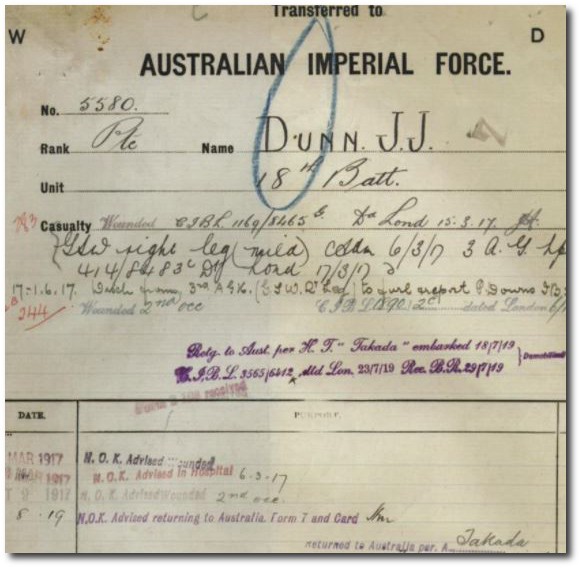 Transferred to
W D
AUSTRALIAN IMPERIAL FORCE.
No. 5580.
Rank Pte Name DUNN. J.J.
Unit 18th Batt.
Casualty Wounded C.I.B.L. 1169/8465 Dd Lond 15.3.17.
GSW right leg (mild) adm 6/3/17 3 A.G.
414/8483 Dd Lond 17/3/17
17-1.6.17. 3rd A.G.H. to furl report
244
Wounded 2nd occ C.I.B.L. dated London
Retg. to Aust. per H. T. "Takada" embarked 18/7/19
C.I.B.L. 3565/6412, dtd Lon. 23/7/19 Rec. B.R. 29/7/19
DATE. PURPOSE.
MAR 1917 N.O.K. Advised Wounded
MAR 1917 N.O.K. Advised in Hospital 6-3-17
1917 N.O.K. Advised Wounded 2nd occ.
8 .19 N.O.K. Advised returning to Australia. Form T and Card
Returned to Australia per. Takada